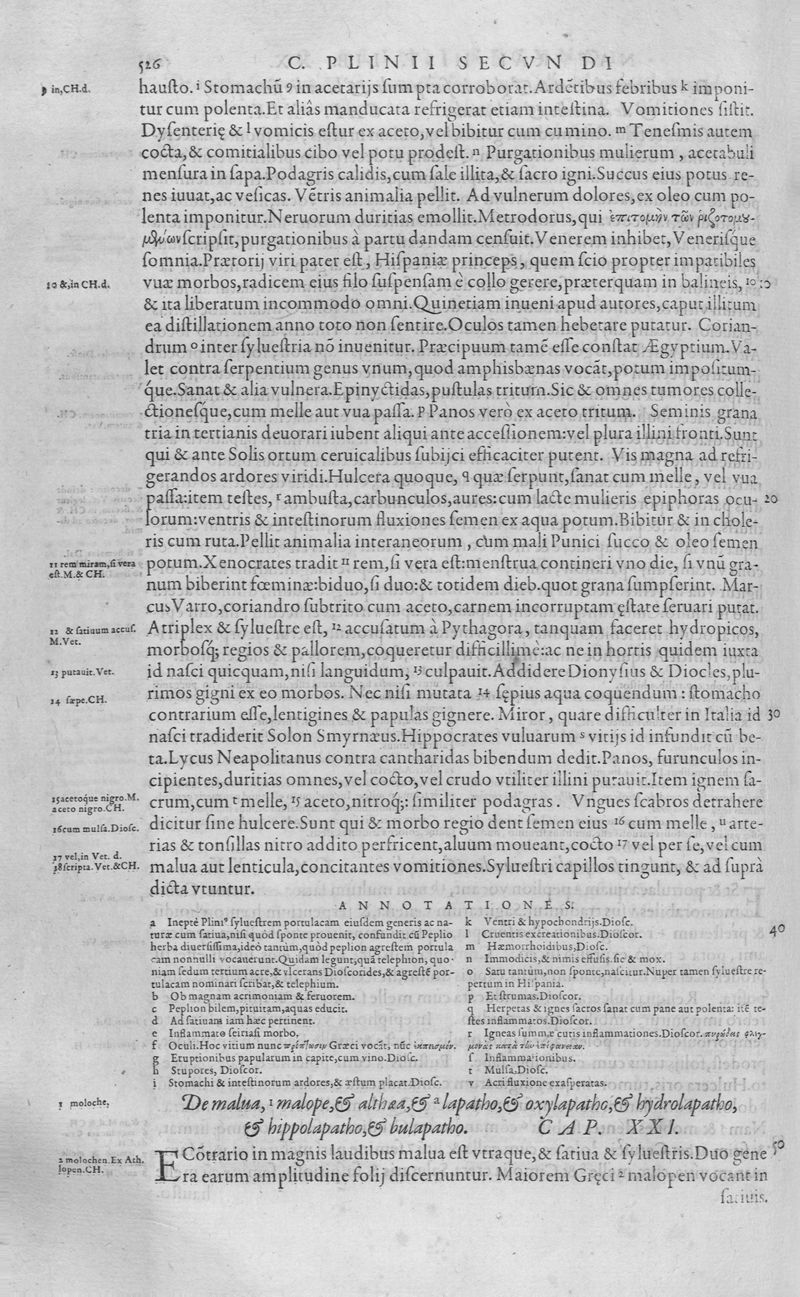 526 C. PLINII SECVNDI
9 in,CH.d.
hausto.¹ Stomachũ 9 in acetarijs sumpta corroborat.Ardẽtibus febribus ᵏ imponi-
tur cum polenta.Et aliâs manducata refrigerat etiam intestina. Vomitiones sistit.
Dysenterię & ˡ vomicis estur ex aceto,vel bibitur cum cumino. ᵐ Tenesmis autem
cocta,& comitialibus cibo vel potu prodest. ⁿ Purgationibus mulierum , acetabuli
mensura in sapa.Podagris calidis,cum sale illita,& sacro igni.Succus eius potus re-
nes iuuat,ac vesicas. Vẽtris animalia pellit. Ad vulnerum dolores,ex oleo cum po-
lenta imponitur.Neruorum duritias emollit.Metrodorus,qui ἐπιτομὴν τῶν ῥιζοτομου-
μένων scripsit,purgationibus à partu dandam censuit.Venerem inhibet,Venerisq́ue
somnia.Prætorij viri pater est, Hispaniæ princeps, quem scio propter impatibiles
10 &,in CH.d.
vuæ morbos,radicem eius filo suspensam è collo gerere,præterquam in balineis, ¹⁰ 10
& ita liberatum incommodo omni.Quinetiam inueni apud autores,caput illitum
ea distillationem anno toto non sentire.Oculos tamen hebetare putatur. Corian-
drum ᵒ inter syluestria nõ inuenitur. Præcipuum tamẽ esse constat Ægyptium.Va-
let contra serpentium genus vnum,quod amphisbænas vocãt,potum impositum-
q́ue.Sanat & alia vulnera.Epinyctidas,pustulas tritum.Sic & omnes tumores colle-
ctionesq́ue,cum melle aut vua passa. ᵖ Panos verò ex aceto tritum. Seminis grana
tria in tertianis deuorari iubent aliqui ante accessionem:vel plura illini fronti.Sunt
qui & ante Solis ortum ceruicalibus subijci efficaciter putent. Vis magna ad refri-
gerandos ardores viridi.Hulcera quoque, ᑫ quæ serpunt,sanat cum melle, vel vua
passa:item testes, ʳ ambusta,carbunculos,aures:cum lacte mulieris epiphoras ocu- 20
lorum:ventris & intestinorum fluxiones semen ex aqua potum.Bibitur & in chole-
ris cum ruta.Pellit animalia interaneorum , cum mali Punici succo & oleo semen
11 rem miram,si vera
est.M.& CH.
potum.Xenocrates tradit ¹¹ rem,si vera est:menstrua contineri vno die, si vnũ gra-
num biberint fœminæ:biduo,si duo:& totidem dieb.quot grana sumpserint. Mar-
cus Varro,coriandro subtrito cum aceto,carnem incorruptam ęstate seruari putat.
12 & satiuum accus.
M.Vet.
Atriplex & syluestre est, ¹² accusatum à Pythagora, tanquam faceret hydropicos,
morbosq; regios & pallorem,coqueretur difficillimè:ac ne in hortis quidem iuxta
13 putauit.Vet.
id nasci quicquam,nisi languidum, ¹³ culpauit.Addidere Dionysius & Diocles,plu-
14 sæpe.CH.
rimos gigni ex eo morbos. Nec nisi mutata ¹⁴ sępius aqua coquendum : stomacho
contrarium esse,lentigines & papulas gignere. Miror, quare difficulter in Italia id 30
nasci tradiderit Solon Smyrnæus.Hippocrates vuluarum ˢ vitijs id infundit cũ be-
ta.Lycus Neapolitanus contra cantharidas bibendum dedit.Panos, furunculos in-
cipientes,duritias omnes,vel cocto,vel crudo vtiliter illini putauit.Item ignem sa-
15 acetoque nigro.M.
aceto nigro.CH.
crum,cum ᵗ melle, ¹⁵ aceto,nitroq;: similiter podagras . Vngues scabros detrahere
16 cum mulsa.Diosc.
dicitur sine hulcere.Sunt qui & morbo regio dent semen eius ¹⁶ cum melle , ᵘ arte-
rias & tonsillas nitro addito perfricent,aluum moueant,cocto ¹⁷ vel per se,vel cum
17 vel,in Vet. d.
18 scripta.Vet.&CH.
malua aut lenticula,concitantes vomitiones.Syluestri capillos tingunt, & ad suprà
dicta vtuntur.
ANNOTATIONES.
a Ineptè Plini⁹ syluestrem portulacam eiusdem generis ac na-
turæ cum satiua,nisi quòd sponte prouenit, confundit cũ Peplio
herba diuersissima,ideò tantùm,quòd peplion agrestem portula
cam nonnulli vocauerunt.Quidam legunt,quã telephion, quo-
niam sedum tertium acre,& vlcerans Dioscorides,& agrestẽ por-
tulacam nominari scribat,& telephium.
b Ob magnam acrimoniam & feruorem.
c Peplion bilem,pituitam,aquas educit.
d Ad satiuam iam hæc pertinent.
e Inflammato seiriasi morbo.
f Oculi.Hoc vitium nunc Græci vocãt, nũc
g Eruptionibus papularum in capite,cum vino.Diosc.
h Stupores, Dioscor.
i Stomachi & intestinorum ardores,& æstum placat.Diosc.
k Ventri & hypochondrijs.Diosc.
l Cruentis excreationibus.Dioscor. 40
m Hæmorrhoidibus,Diosc.
n Immodicis,& nimis effusis.sic & mox.
o Satu tantùm,non sponte,nascitur.Nuper tamen syluestre re-
pertum in Hispania.
p Et strumas.Dioscor.
q Herpetas & ignes sacros sanat cum pane aut polenta: itẽ te-
stes inflammatos.Dioscor.
r Igneas summæ cutis inflammationes.Dioscor.
s Inflammationibus.
t Mulsa.Diosc.
v Acri fluxione exasperatas.
1 moloche.
De malua, ¹ malope,& althæa,& ² lapatho,& oxylapatho,& hydrolapatho,
& hippolapatho,& bulapatho. CAP. XXI.
2 molochen.Ex Ath.
lopen.CH.
E Cõtrario in magnis laudibus malua est vtraque,& satiua & syluestris.Duo gene 50
ra earum amplitudine folij discernuntur. Maiorem Gręci ² malopen vocant in
satiuis.